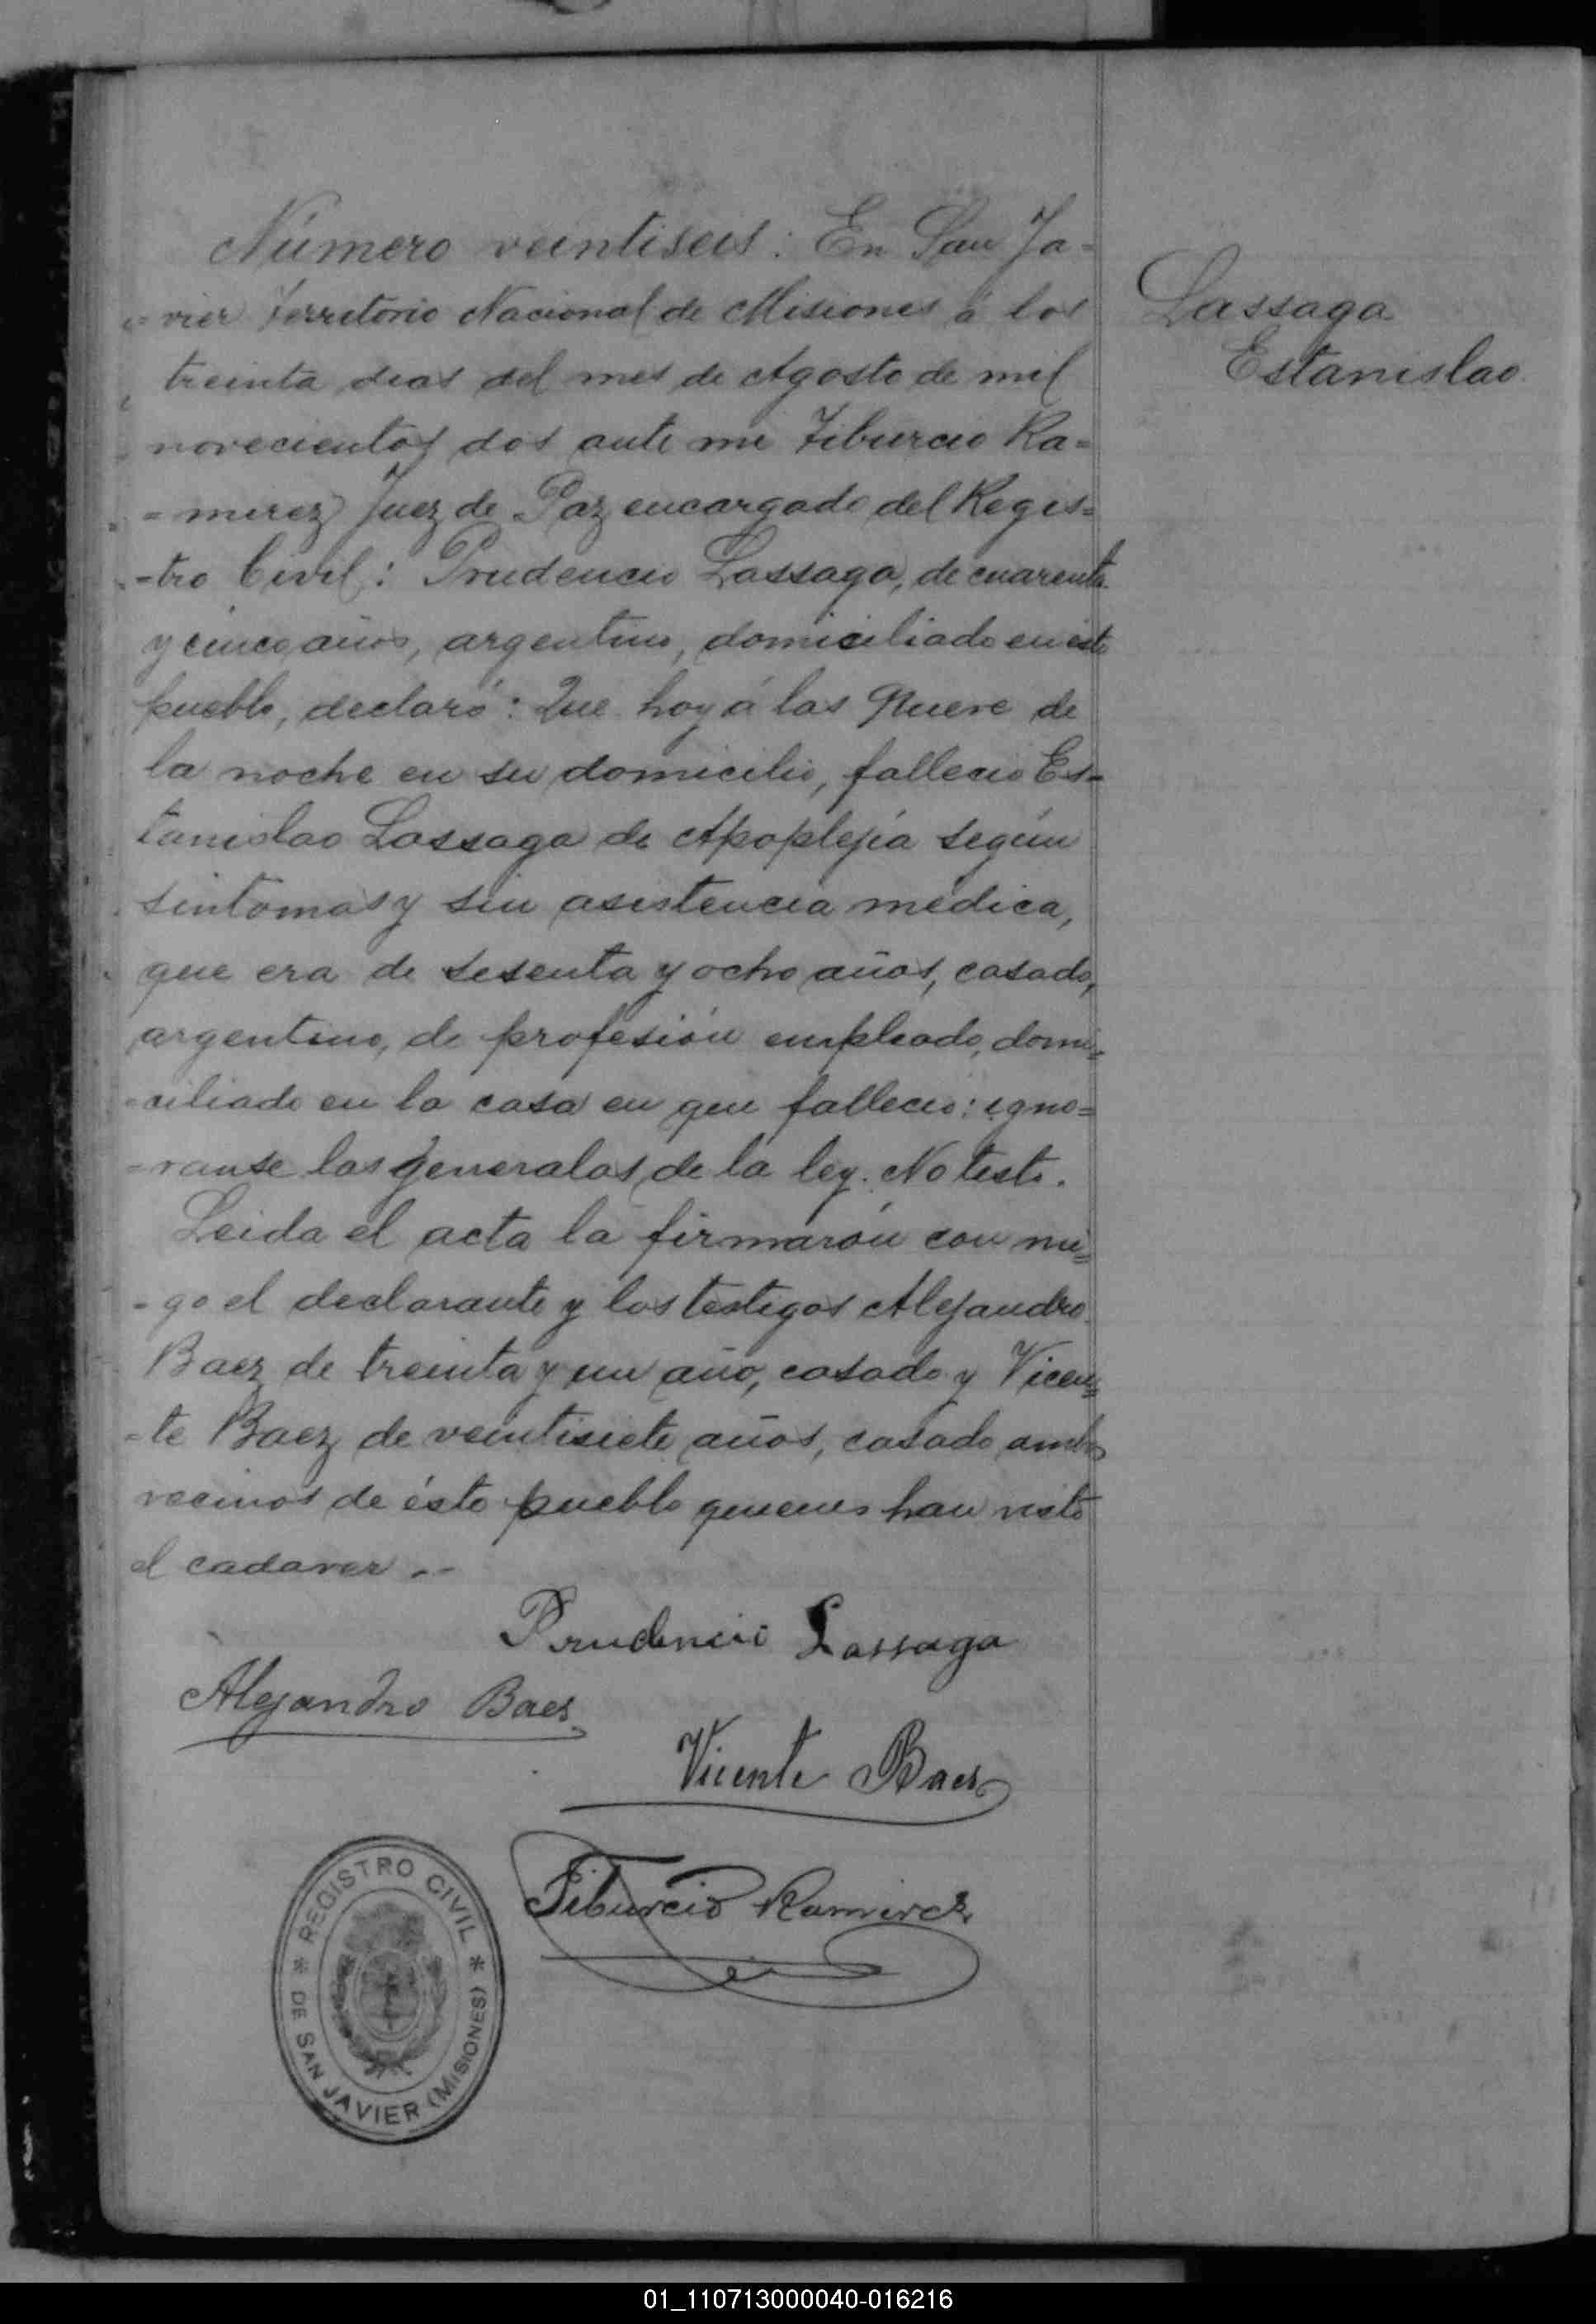 Número veintiseis: En San Ja-
Lassaga
Estanislao.
vier Territorio Nacional de Misiones á los
treinta dias del mes de Agosto de mil
novecientos dos ante mi Tiburcio Ra-
-mirez Juez de Paz encargado del Regis-
-tro Civil: Prudencio Lassaga, de cuarenta
y cinco años, argentino, domiciliado en este
pueblo, declaró: Que hoy á las Nueve de
la noche en su domicilio, fallecio Es-
tanislao Lassaga de Apoplejía según
sintomas y sin asistencia médica,
que era de sesenta y ocho años, casado,
argentino, de profesión empleado, domi-
-ciliado en la casa en que fallecio: igno-
-ranse las generalas de la ley. No testo.
Leida el acta la firmarón con mi-
-go el declarante y los testigos Alejandro
Baez de treinta y un año, casado y Vicen-
-te Baez de veintisiete años, casado ambos
vecinos de ésto pueblo quienes han visto
el cadaver.-
Prudencio Lassaga
Alejandro Baes
Vicente Baes
Tiburcio Ramirez
REGISTRO CIVIL
* DE SAN JAVIER (MISIONES) *
01_110713000040-016216